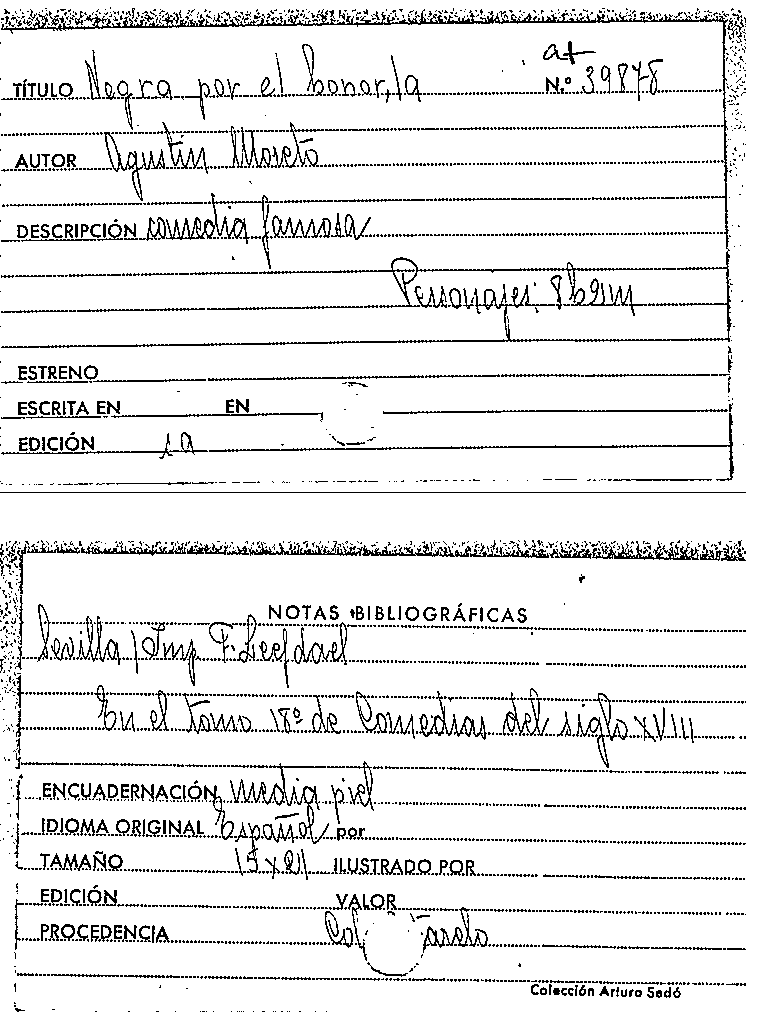 at
TÍTULO Negra por el honor, la N.º 39878
AUTOR Agustín Moreto
DESCRIPCIÓN comedia famosa
Personajes: 8h 9m
ESTRENO
ESCRITA EN EN
EDICIÓN 1a
NOTAS BIBLIOGRÁFICAS
Sevilla / Imp F. Leefdael
En el tomo 18º de Comedias del siglo XVIII
ENCUADERNACIÓN media piel
IDIOMA ORIGINAL Español por
TAMAÑO 15 x 21 ILUSTRADO POR
EDICIÓN VALOR
PROCEDENCIA Col
Colección Arturo Sedó